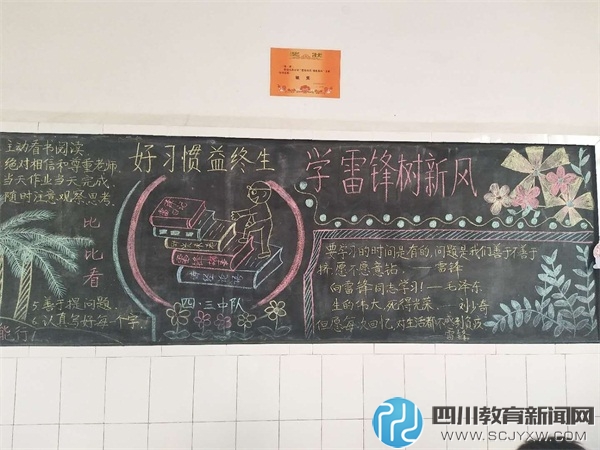 奖状
主动看书阅读
绝对相信和尊重老师
当天作业当天完成
随时注意观察思考
比
比
看
5.善于提问题
6.认真写好每一个字
能行
好习惯益终生
四·三中队
学雷锋树新风
要学习的时间是有的,问题是我们善于不善于
挤,愿不愿意钻。——雷锋
向雷锋同志学习!——毛泽东
生的伟大,死得光荣。——刘少奇
但愿每次回忆,对生活都不感到负疚
四川教育新闻网
WWW.SCJYXW.COM